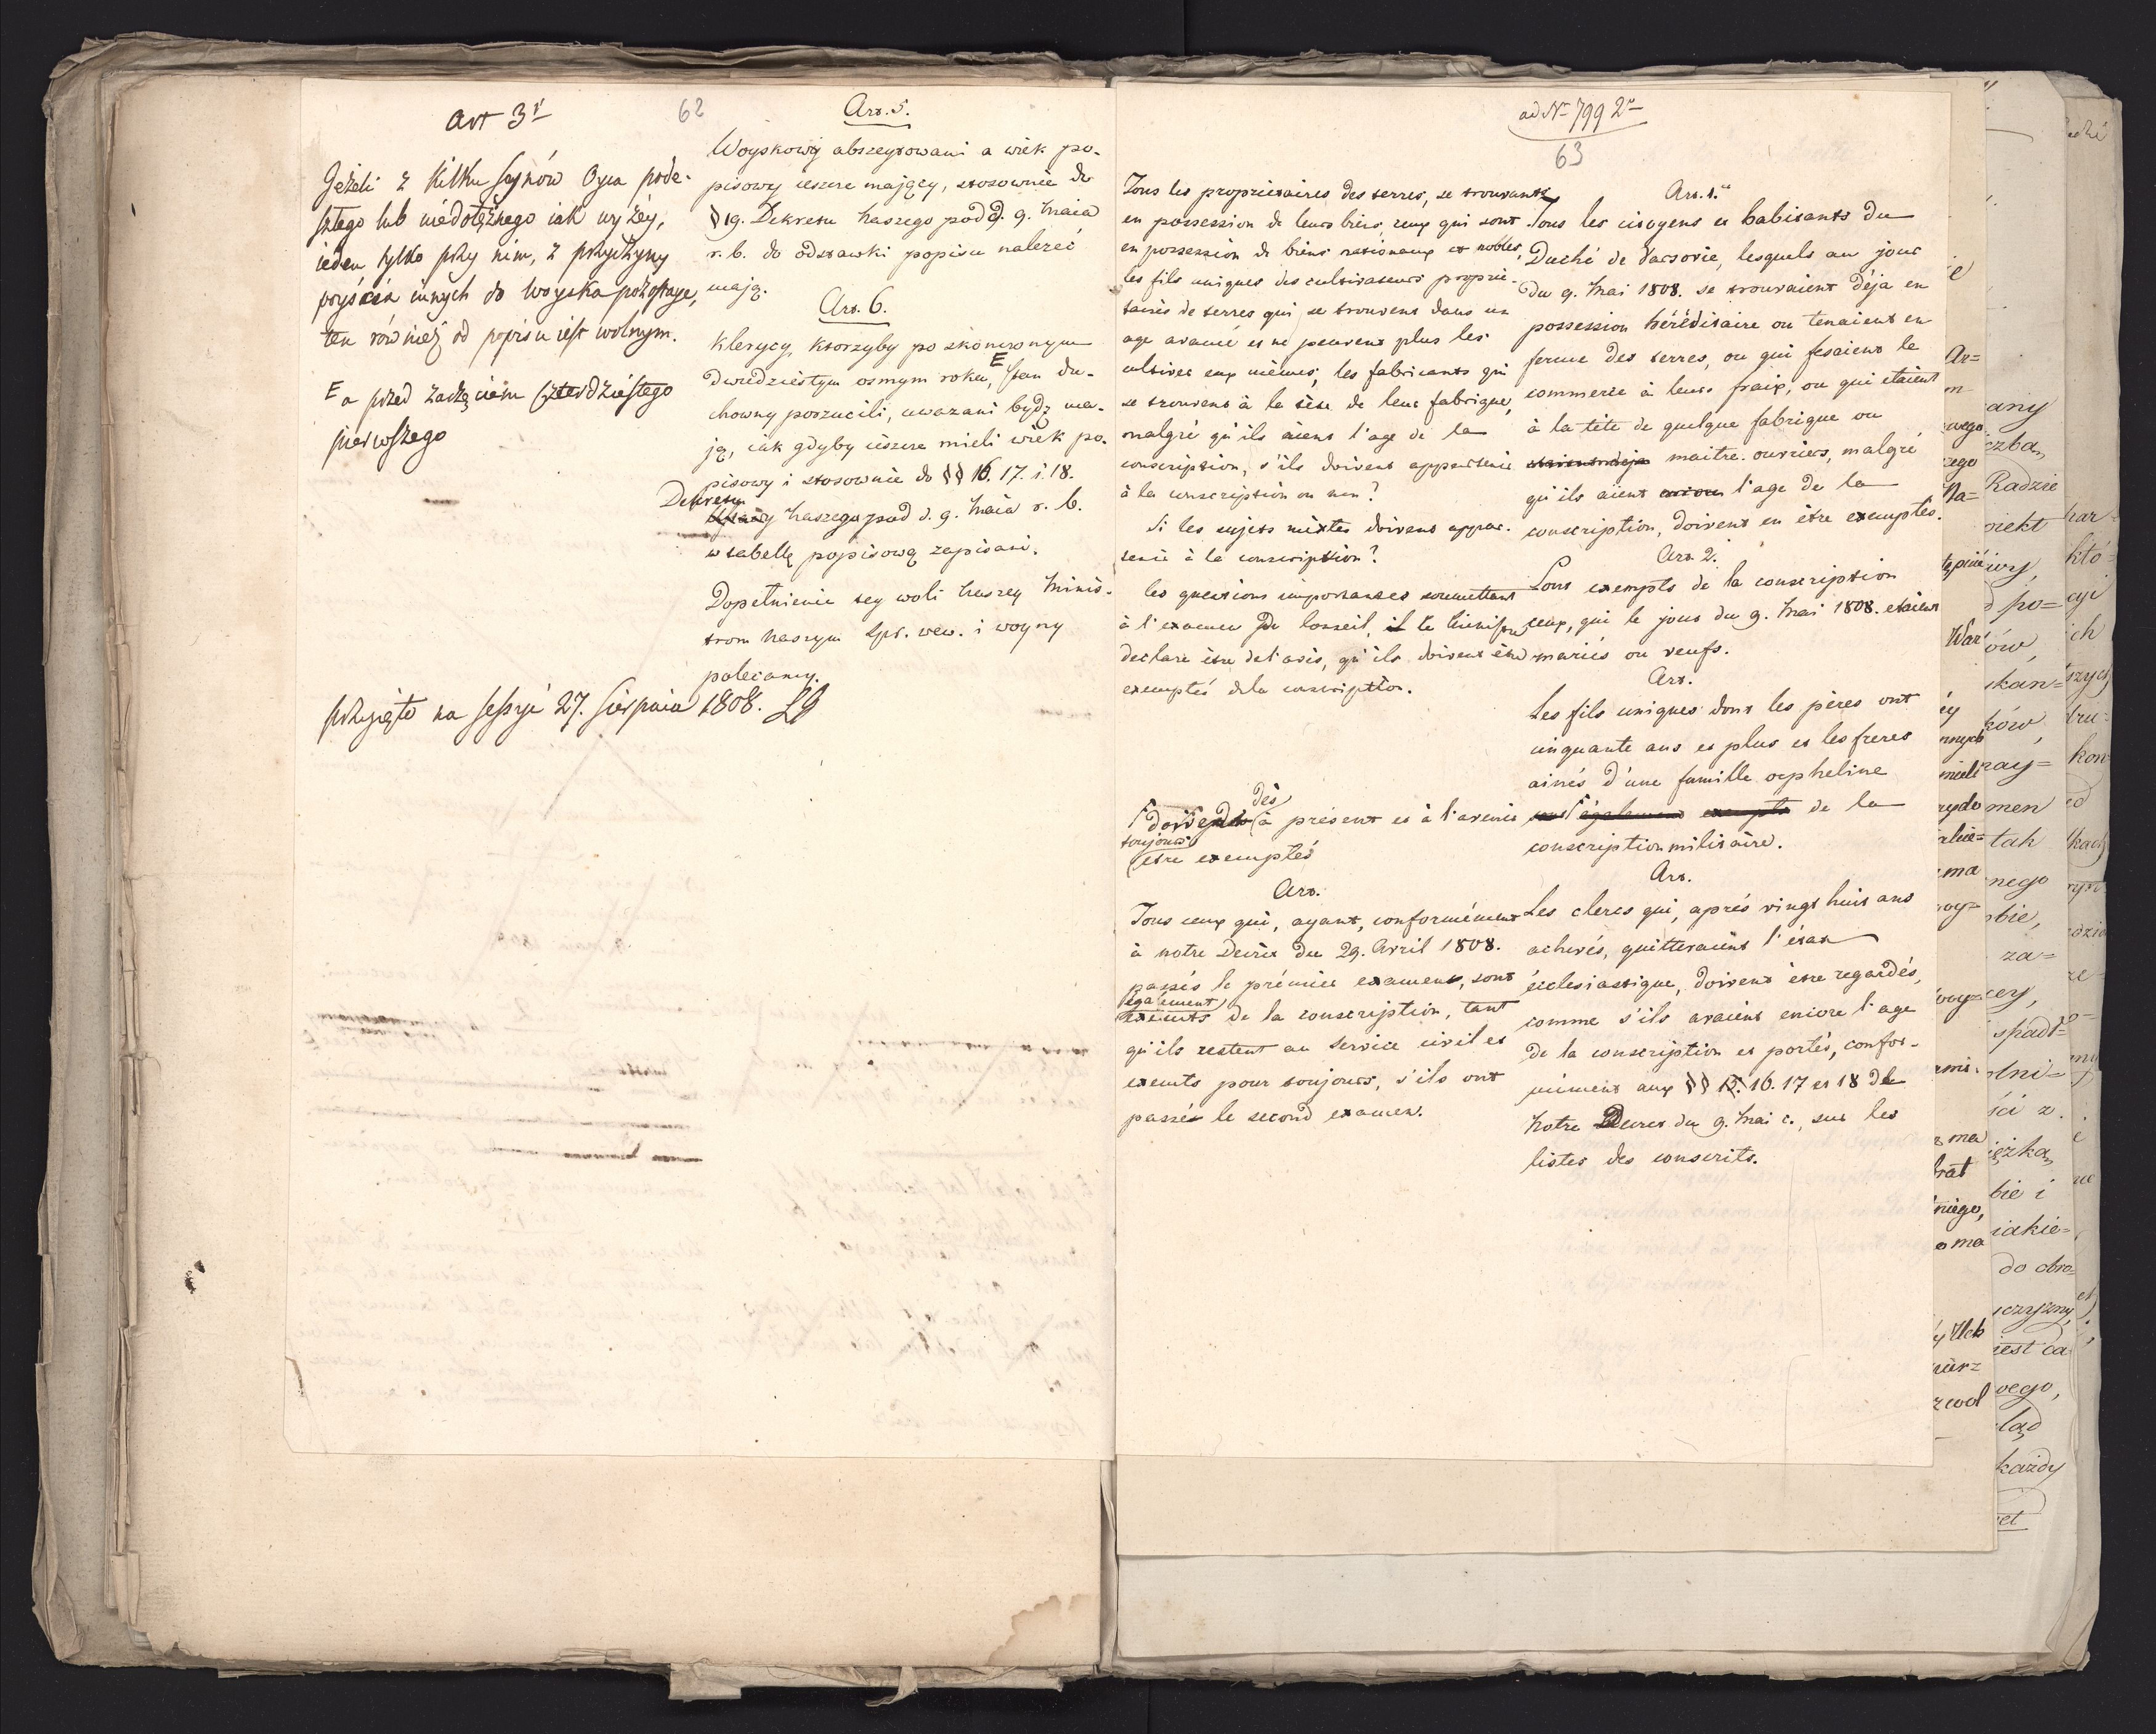 62
Art 3ci
Jeżeli z kilku synów Oyca pode-
szłego lub niedołężnego iak wyżéy,
ieden tylko przy nim, z przyczyny
póyścia innych do woyska pozostaye,
ten również od popisu iest wolnym.
E a przed zaczęciem czterdziestego
pierwszego
Art. 5.
Woyskowi abszeytowani a wiek po-
pisowy ieszcze mający, stosownie do
§ 19. Dekretu Naszego pod d. 9. Maia
r. b. do odstawki popisu należeć
mają.
Art. 6.
Klerycy, ktorzyby po skończonym
dwudziestym osmym roku, E stan du-
chowny porzucili, uważani bydź ma-
ją, iak gdyby ieszcze mieli wiek po-
pisowy i stosownie do §§ 16. 17. i 18.
Dekretu
Naszego pod d. 9. Maia r. b.
w tabellę popisową zapisani.
Dopełnienie tey woli Naszey Minis-
trom Naszym Spr. wew. i woyny
polecamy.
przyjęto na sessyi 27. Sierpnia 1808.
ad No 799 2
63
Tous les proprietaires des terres, se trouvants
en possession de leurs biens, ceux qui sont
en possession de biens nationaux et nobles,
les fils uniques des cultivateurs proprie-
taires de terres qui se trouvent dans un
age avancé et ne peuvent plus les
cultiver eux mêmes, les fabricants qui
se trouvent à la tête de leur fabrique,
malgré qu'ils aient l'age de la
conscription, s'ils doivent appartenir
à la conscription ou non?
Si les sujets mixtes doivent appar-
tenir à la conscription?
les questions importantes soumettant
à l'examen du Conseil, il le Ministre
declare être de l'avis, qu'ils doivent être
exemptés de la conscription.
doivent dès à présent et à l'avenir
toujours
être exemptés
Art.
Tous ceux qui, ayant, conformément
à notre Decret du 29. Avril 1808.
passés le prémier examens, sont
également
exemts de la conscription, tant
qu'ils restent au service civil et
exemts pour toujours, s'ils ont
passés le second examen.
Art. 1.
Tous les citoyens et habitants du
Duché de Varsovie, lesquels au jour
du 9. Mai 1808. se trouvaient déja en
possession héréditaire ou tenaient en
ferme des terres, ou qui fesaient le
commerce à leurs fraix, ou qui etaient
à la tête de quelque fabrique ou
maitre-ouvriers, malgré
qu'ils aient l'age de la
conscription, doivent en être exemptés.
Art. 2.
Sont exempts de la conscription
ceux, qui le jour du 9. Mai 1808. etaient
mariés ou veufs.
Art.
Les fils uniques dont les pères ont
cinquante ans et plus et les freres
ainés d'une famille orpheline
sont également exempts de la
conscription militaire.
Art.
Les clercs qui, aprés vingt huit ans
achevés, quitteraient l'état
écclesiastique, doivent être regardés,
comme s'ils avaient encore l'age
de la conscription et portés, confor-
mément aux §§ 15. 16. 17 et 18 de
Notre Decret du 9. Mai c., sur les
listes des conscrits.